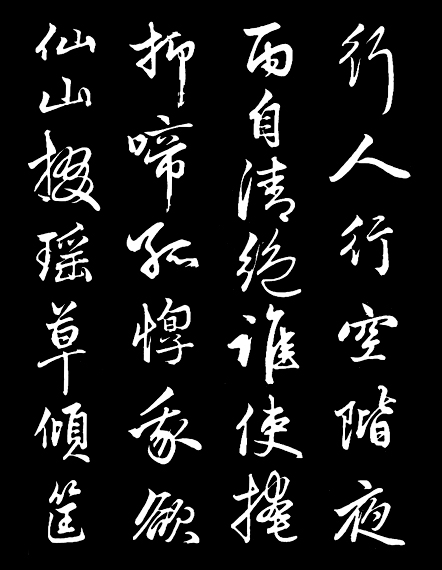 行人行空階夜
雨自清絕誰使掩
抑啼孤惸我欲
仙山掇瑤草傾筐